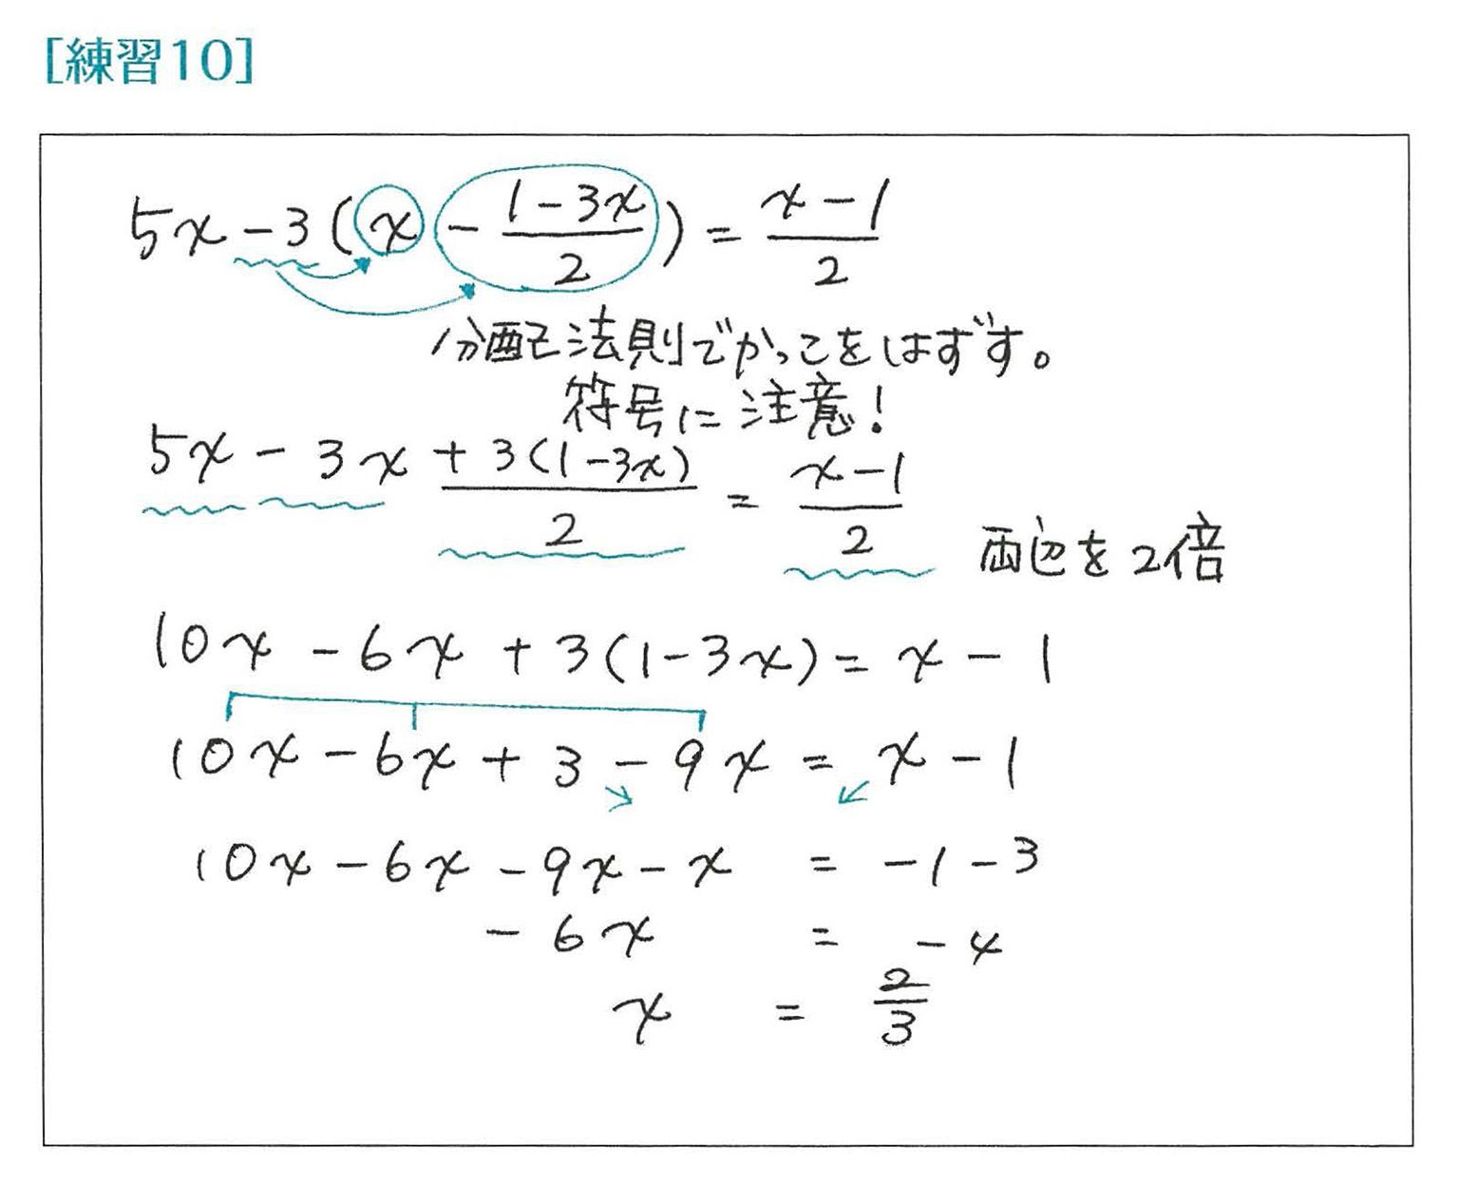 [練習10]
5x－3(x－(1－3x)/2)＝(x－1)/2
分配法則でかっこをはずす。
符号に注意！
5x－3x＋3(1－3x)/2＝(x－1)/2
両辺を2倍
10x－6x＋3(1－3x)＝x－1
10x－6x＋3－9x＝x－1
10x－6x－9x－x＝－1－3
－6x＝－4
x＝2/3